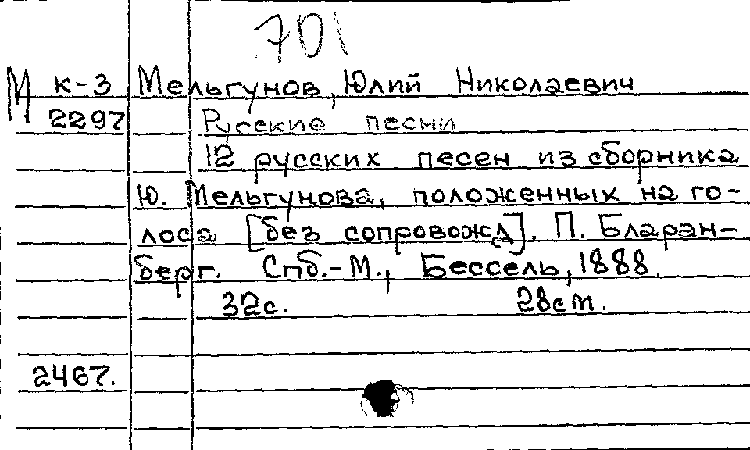 701
М к-3 Мельгунов, Юлий Николаевич
2297 Русские песни
12 русских песен из сборника
Ю. Мельгунова, положенных на го-
лоса [без сопровожд]. П. Бларам-
берг. Спб.-М., Бессель, 1888.
32с. 28см.
2467.